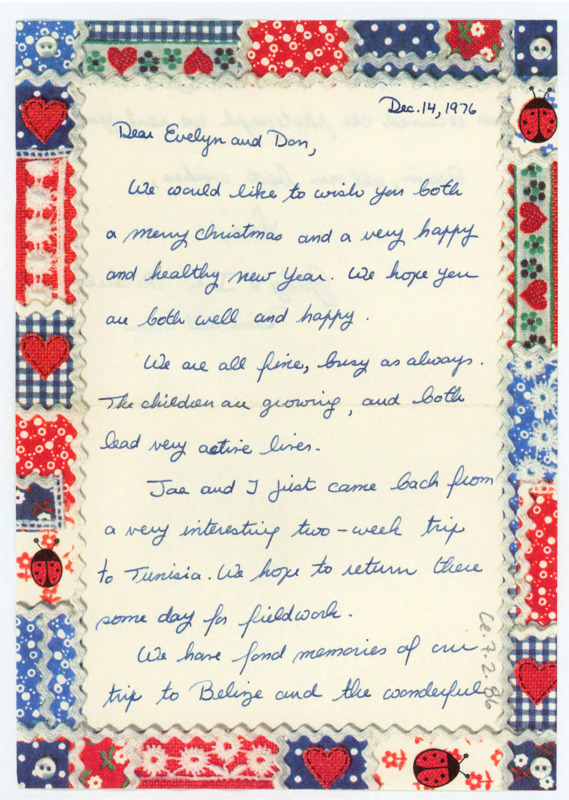 Dec. 14, 1976
Dear Evelyn and Don,
We would like to wish you both
a merry christmas and a very happy
and healthy new year. We hope you
are both well and happy.
We are all fine, busy as always.
The children are growing, and both
lead very active lives.
Jae and I just came back from
a very interesting two-week trip
to Tunisia. We hope to return there
some day for fieldwork.
We have fond memories of our
trip to Belize and the wonderful